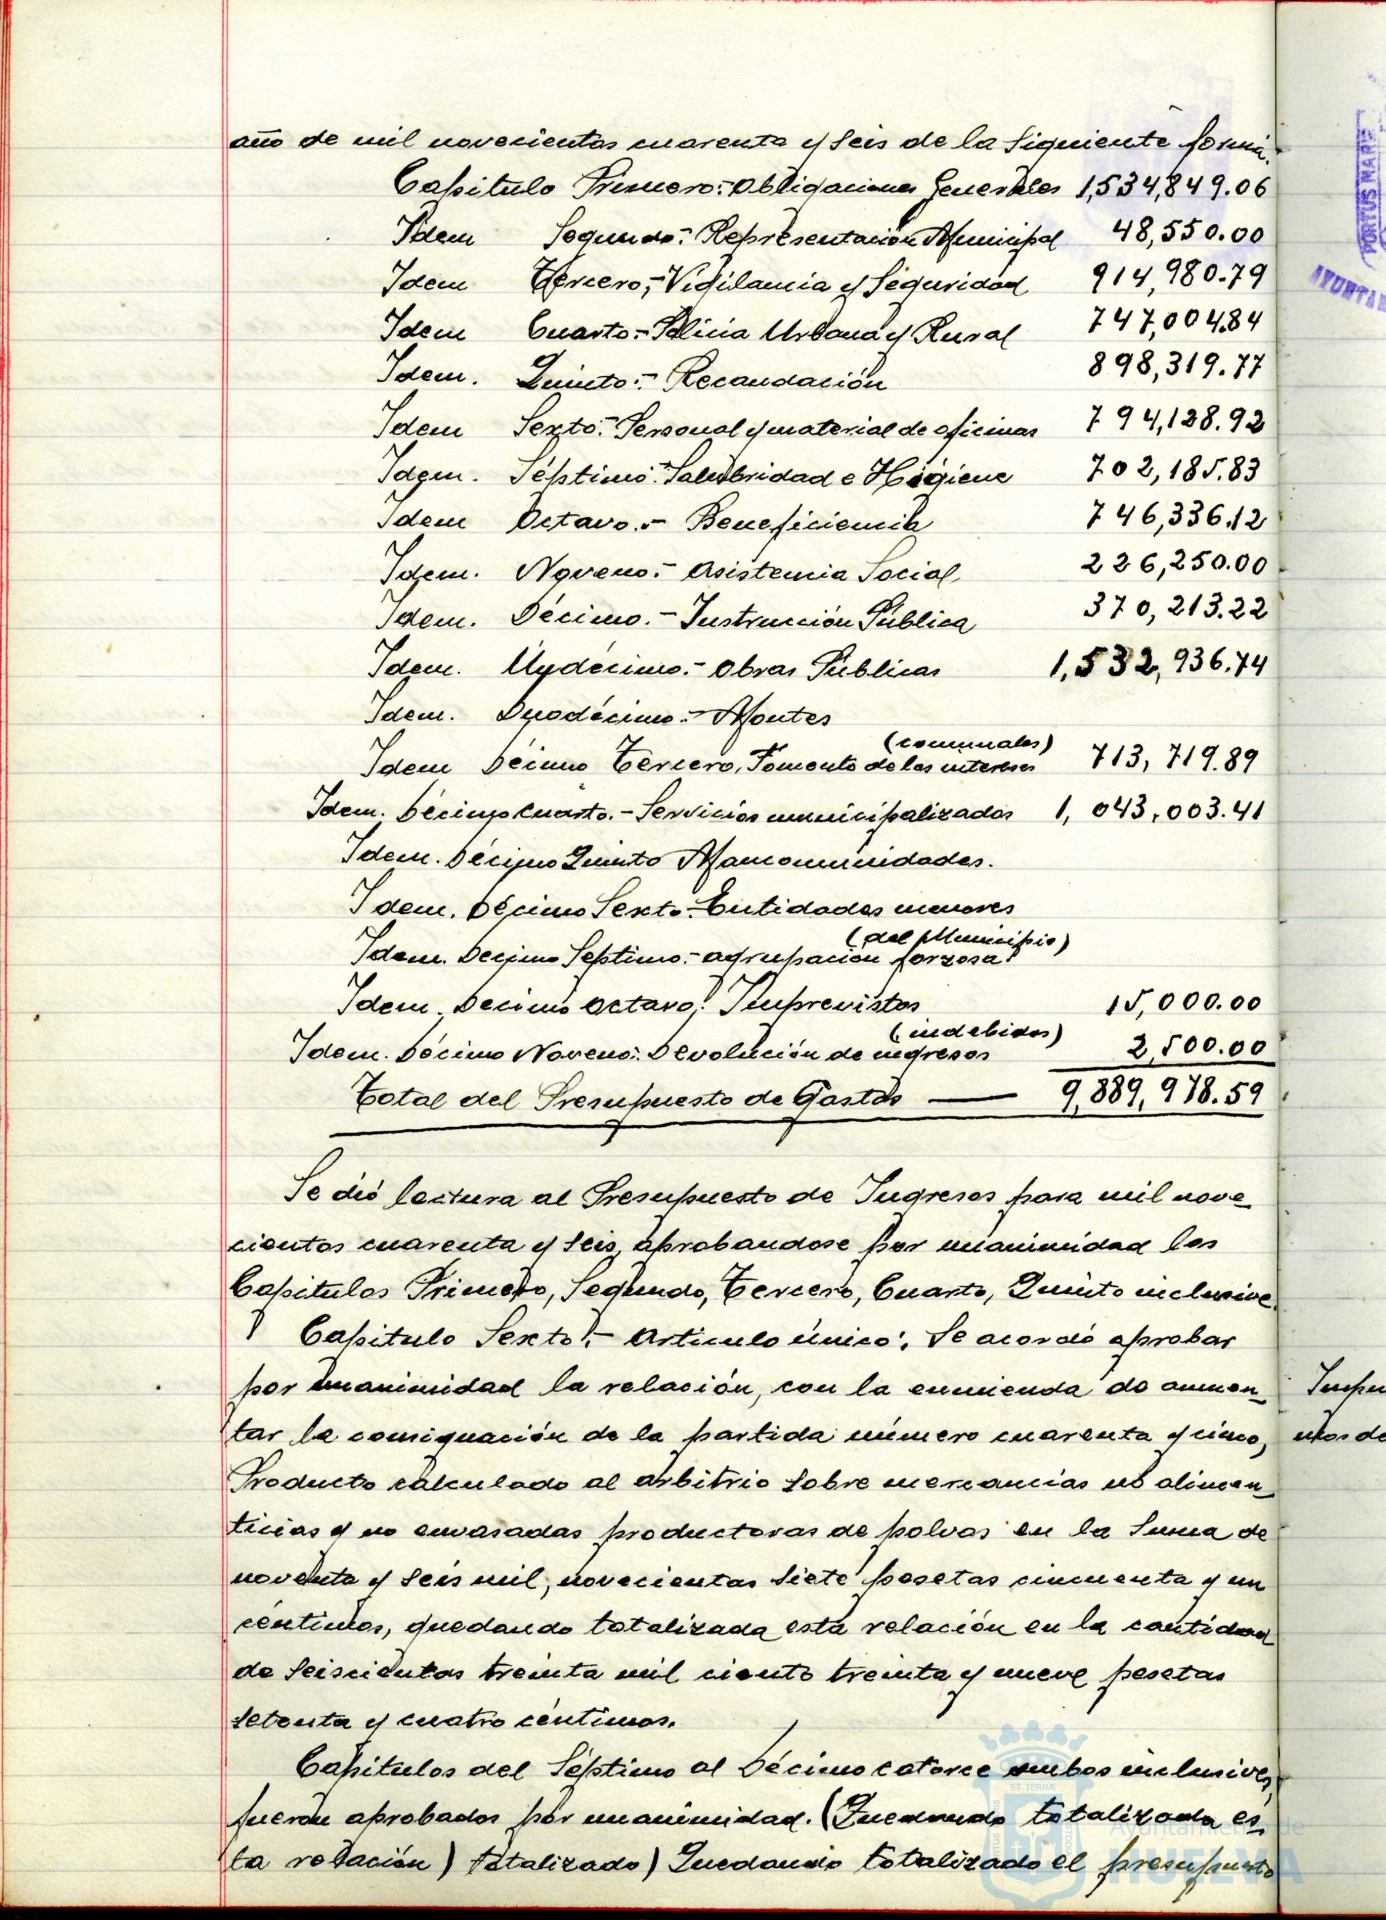 año de mil novecientos cuarenta y seis de la siguiente forma.
Capitulo Primero:- Obligaciones Generales 1,534,849.06
Idem Segundo:- Representación Municipal 48,550.00
Idem Tercero,- Vigilancia y Seguridad 914,980.79
Idem Cuarto:- Policia Urbana y Rural 747,004.84
Idem. Quinto:- Recaudación 898,319.77
Idem Sexto:- Personal y material de oficinas 794,128.92
Idem. Séptimo:- Salubridad e Higiene 702,185.83
Idem Octavo.- Beneficiencia 746,336.12
Idem. Noveno:- Asistencia Social 226,250.00
Idem. Décimo.- Instrucción Pública 370,213.22
Idem. Undécimo:- Obras Publicas 1,532,936.74
Idem. Duodécimo:- Montes
(comunales)
Idem Décimo Tercero, Fomento de los intereses 713,719.89
Idem. Décimo Cuarto.- Servicios municipalizados 1,043,003.41
Idem. Décimo Quinto Mancomunidades.
Idem. Décimo Sexto:- Entidades menores
(del Municipio)
Idem. Decimo Septimo:- agrupación forzosa
Idem. Decimo Octavo: Imprevistos 15,000.00
(indebidos)
Idem. Décimo Noveno: Devolución de ingresos 2,500.00
Total del Presupuesto de Gastos — 9,889,978.59
Se dió lectura al Presupuesto de Ingresos para mil nove-
cientos cuarenta y seis, aprobandose por unanimidad los
Capitulos Primero, Segundo, Tercero, Cuarto, Quinto inclusive.
Capitulo Sexto:- Articulo único: Se acordó aprobar
por unanimidad la relación, con la enmienda de aumen-
tar la consignación de la partida número cuarenta y cinco,
Producto calculado al arbitrio sobre mercancias no alimen-
ticias y no envasadas productoras de polvos en la suma de
noventa y seis mil, novecientas siete pesetas cincuenta y un
céntimos, quedando totalizada esta relación en la cantidad
de seiscientas treinta mil ciento treinta y nueve pesetas
setenta y cuatro céntimos.
Capitulos del Séptimo al Décimo catorce ambos inclusives,
fueron aprobados por unanimidad. (Quedando totalizada es-
ta relación) totalizado) Quedando totalizado el presupuesto
PORTUS MARIS
AYUNTA
Ayuntamiento de
HUELVA